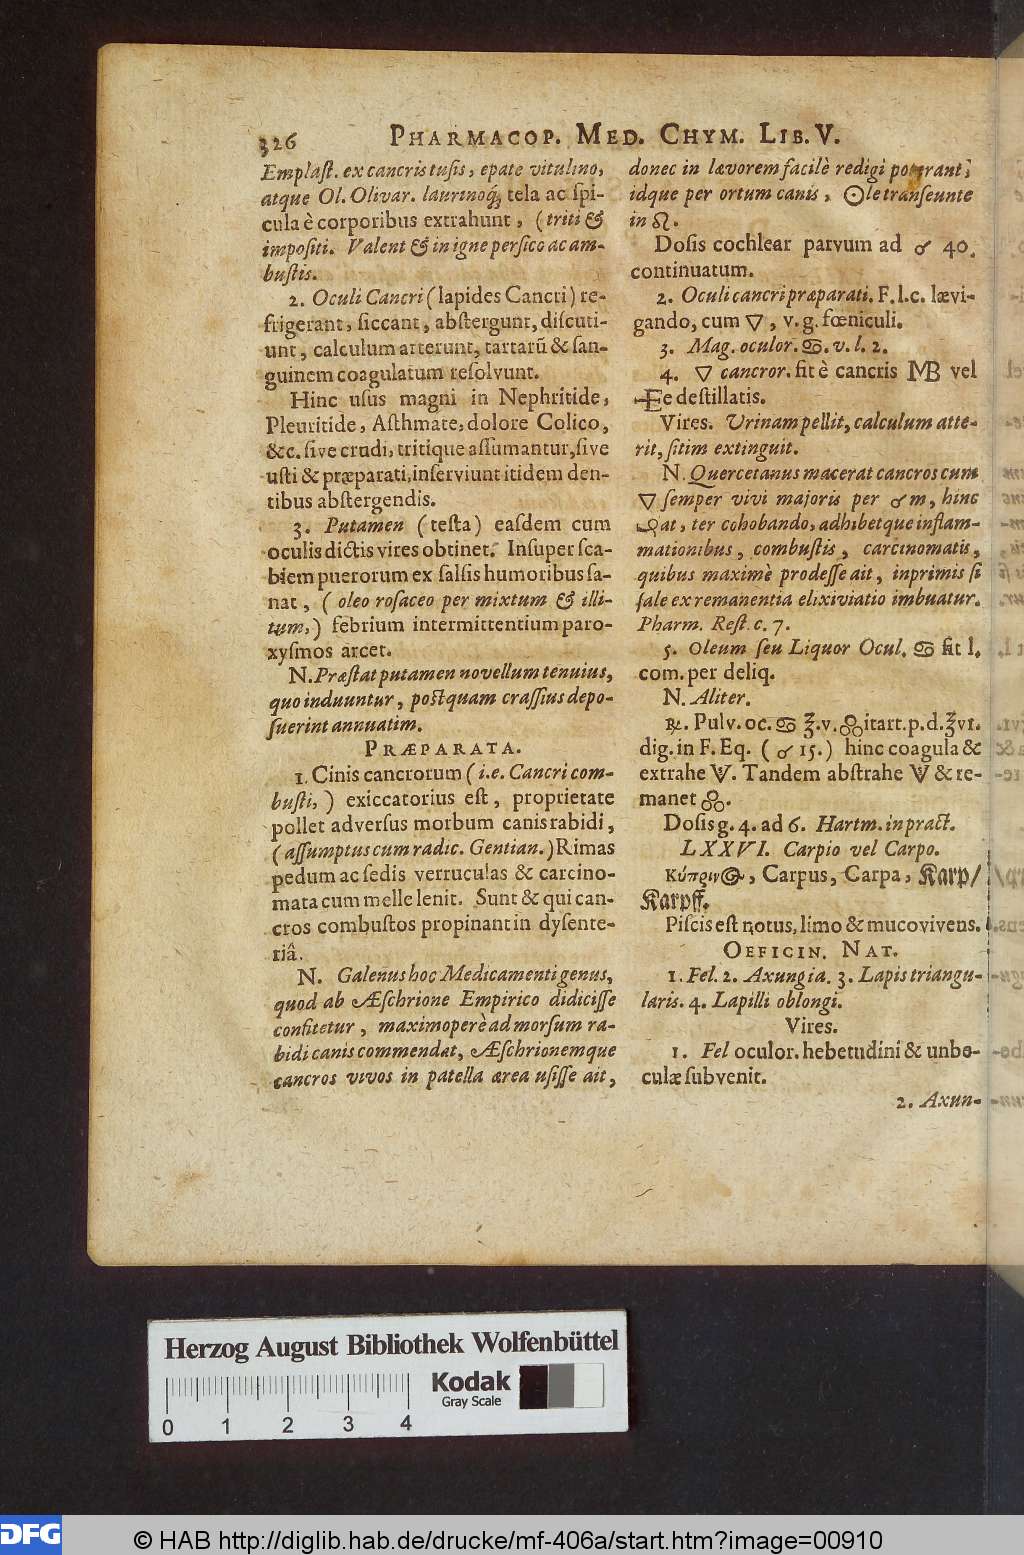 326 PHARMACOP. MED. CHYM. LIB. V.
Emplaſt. ex cancris tuſis, epate vitulino,
atque Ol. Olivar. laurinoq́; tela ac ſpi-
cula è corporibus extrahunt, (triti &
impoſiti. Valent & in igne perſico ac am-
buſtis.
2. Oculi Cancri (lapides Cancri) re-
frigerant, ſiccant, abſtergunt, diſcuti-
unt, calculum atterunt, tartarū & ſan-
guinem coagulatum reſolvunt.
Hinc uſus magni in Nephritide,
Pleuritide, Aſthmate, dolore Colico,
&c. ſive crudi, tritique aſſumantur, ſive
uſti & præparati, inſerviunt itidem den-
tibus abſtergendis.
3. Putamen (teſta) easdem cum
oculis dictis vires obtinet. Inſuper ſca-
biem puerorum ex ſalſis humoribus ſa-
nat, (oleo roſaceo per mixtum & illi-
tum,) febrium intermittentium paro-
xyſmos arcet.
N. Præſtat putamen novellum tenuius,
quo induuntur, poſtquam craſſius depo-
ſuerint annuatim.
PRÆPARATA.
1. Cinis cancrorum (i.e. Cancri com-
buſti,) exiccatorius eſt, proprietate
pollet adverſus morbum canis rabidi,
(aſſumptus cum radic. Gentian.) Rimas
pedum ac ſedis verruculas & carcino-
mata cum melle lenit. Sunt & qui can-
cros combuſtos propinant in dyſente-
riâ.
N. Galenus hoc Medicamenti genus,
quod ab Æſchrione Empirico didiciſſe
confitetur, maximoperè ad morſum ra-
bidi canis commendat, Æſchrionemque
cancros vivos in patella ærea uſiſſe ait,
donec in lævorem facilè redigi poterant;
idque per ortum canis, ☉le tranſeunte
in ♌.
Doſis cochlear parvum ad ♂ 40.
continuatum.
2. Oculi cancri præparati. F. l. c. lævi-
gando, cum ▽, v. g. fœniculi.
3. Mag. oculor. ♋. v. l. 2.
4. ▽ cancror. fit è cancris MB vel
e deſtillatis.
Vires. Urinam pellit, calculum atte-
rit, ſitim extinguit.
N. Quercetanus macerat cancros cum
▽ ſemper vivi majoris per ♂ m, hinc
at, ter cohobando, adhibetque inflam-
mationibus, combuſtis, carcinomatis,
quibus maximè prodeſſe ait, inprimis ſi
ſale ex remanentia elixiviatio imbuatur.
Pharm. Reſt. c. 7.
5. Oleum ſeu Liquor Ocul. ♋ fit l.
com. per deliq.
N. Aliter.
℞. Pulv. oc. ♋ ℥. v. itart. p. d. ℥vi.
dig. in F. Eq. (♂ 15.) hinc coagula &
extrahe . Tandem abſtrahe & re-
manet .
Doſis g. 4. ad 6. Hartm. in pract.
LXXVI. Carpio vel Carpo.
Κύπριν, Carpus, Carpa, Karp/
Karpff.
Piſcis eſt notus, limo & muco vivens.
OFFICIN. NAT.
1. Fel. 2. Axungia. 3. Lapis triangu-
laris. 4. Lapilli oblongi.
Vires.
1. Fel oculor. hebetudini & unbo-
culæ ſubvenit.
2. Axun-
Herzog August Bibliothek Wolfenbüttel
Kodak
Gray Scale
0 1 2 3 4
DFG
© HAB http://diglib.hab.de/drucke/mf-406a/start.htm?image=00910